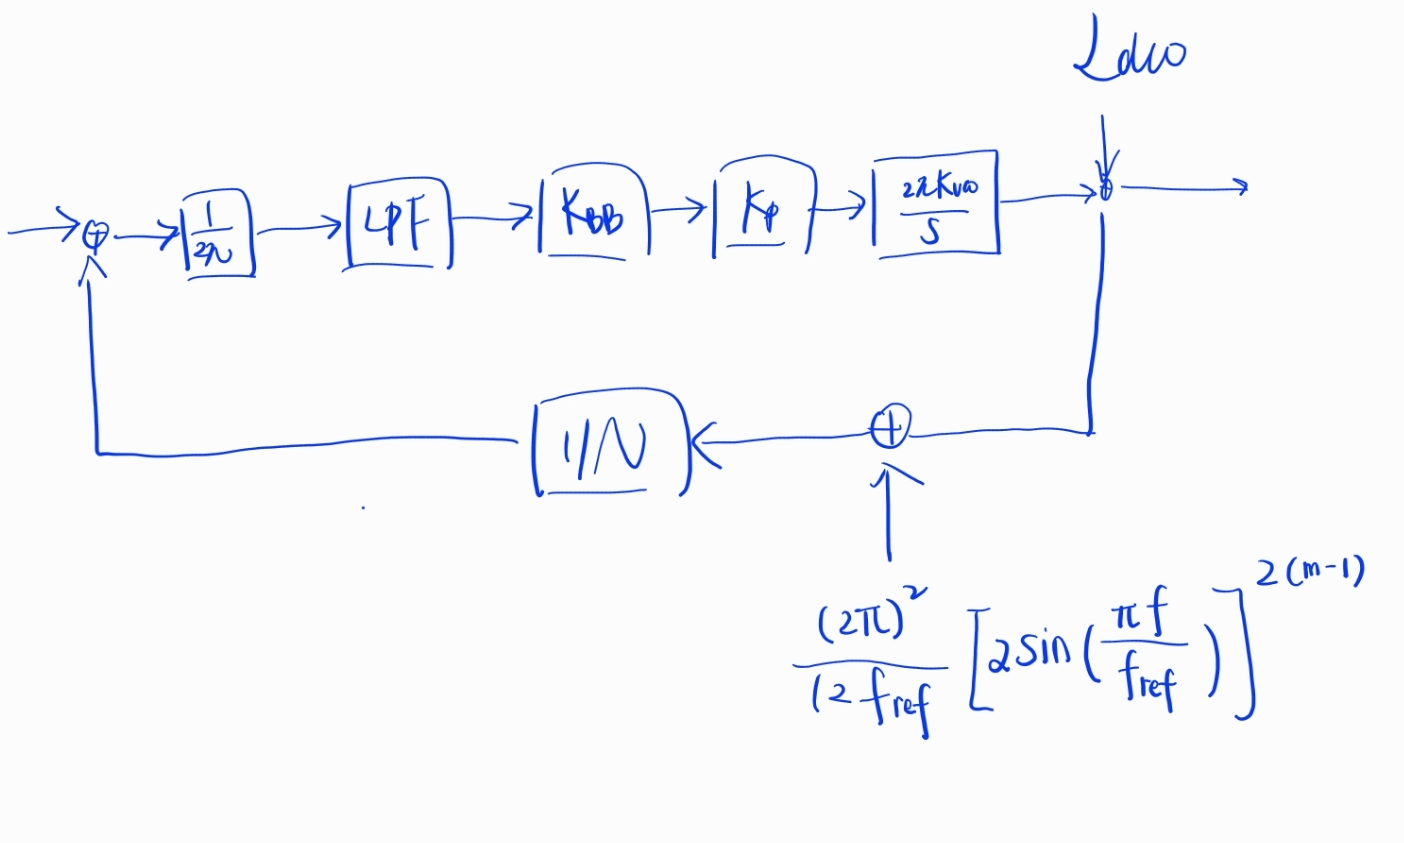 L dco
1/2π LPF K_BB K_p 2πK_vco/S
1/N
(2π)²/12 f_ref [2 sin(πf/f_ref)]^2(m-1)